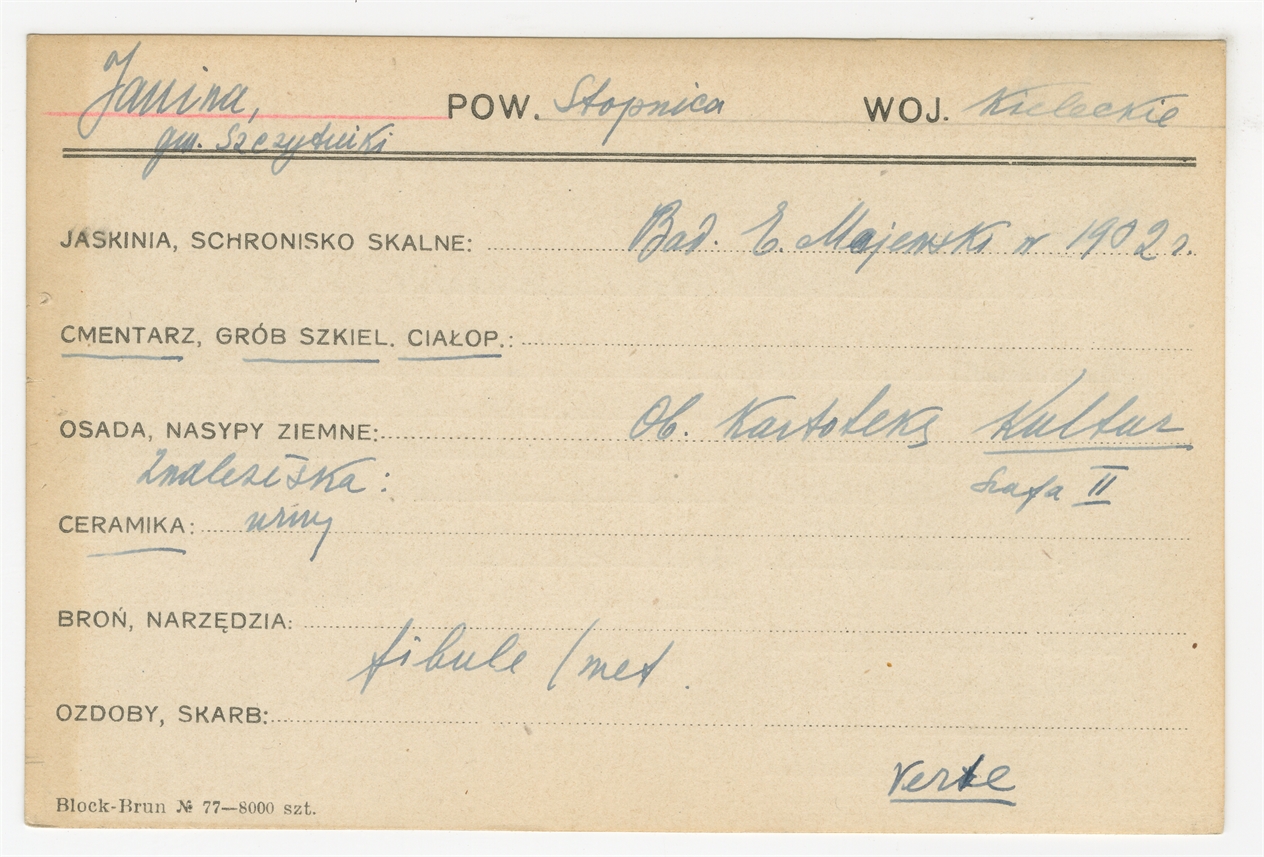 Janina, POW. Stopnica WOJ. Kieleckie
gm. Szczytniki
JASKINIA, SCHRONISKO SKALNE: Bad. E. Majewski w 1902 r.
CMENTARZ, GRÓB SZKIEL. CIAŁOP.:
OSADA, NASYPY ZIEMNE: Ob. Kartotekę Kultur
Znaleziska: Szafa II
CERAMIKA: urny
BROŃ, NARZĘDZIA:
fibule /met.
OZDOBY, SKARB:
Verte
Block-Brun № 77—8000 szt.